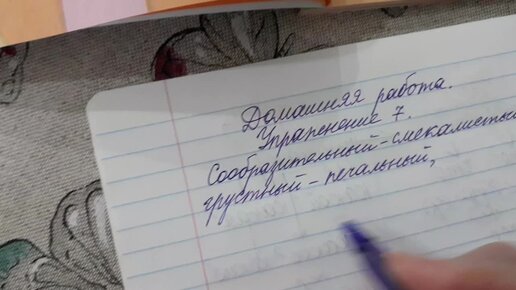 Домашняя работа.
Упражнение 7.
Сообразительный - смекалистый
грустный - печальный,